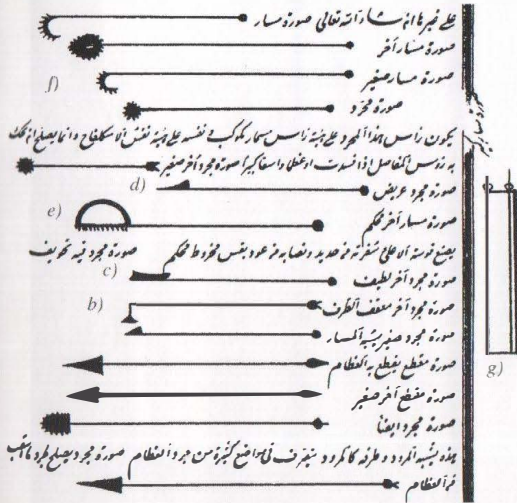 على غيرها ان شاء الله تعالى صورة مسار
صورة منشار آخر
f)
صورة مسار صغير
صورة مجرد
يكون رأس هذا المجرد على هيئة رأس مسمار كوكب في نفسه على هيئة نقش الاسكلفاج وانما يصلح ان تحك
به رؤس المفاصل اذا فسدت او عظما واسعا كبيرا صورة مجرد آخر صغير
d)
صورة مجرد عريض
e)
صورة مسار آخر محكم
يصنع قوسه الاعلى شفرته من حديد ونصابه من عود بقس مخروط محكم صورة مجرد فيه تجويف
c)
صورة مجرد آخر لطيف
b)
صورة مجرد آخر معقف الطرف
صورة مجرد صغير يشبه المسار
صورة مقطع يقطع به العظام
صورة مقطع آخر صغير
g)
صورة مجرد ايضا
هذه يشبه المرود وطرفه كالمرود يتصرف في مواضع كثيرة من جرد العظام صورة مجرد يصلح لجرد ما
من العظام